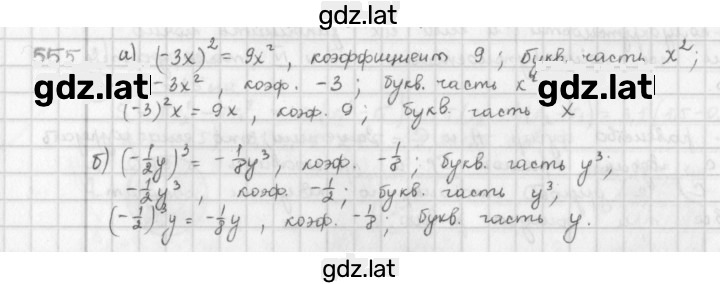 gdz.lat
555 а) (-3x)² = 9x², коэффициент 9; букв. часть x²;
-3x², коэф. -3; букв. часть x
gdz.lat gdz.lat
(-3)²x = 9x, коэф. 9; букв. часть x
б) (-1/2 y)³ = -1/8 y³, коэф. -1/8; букв. часть y³;
-1/2 y³, коэф. -1/2; букв. часть y³;
(-1/2)³y = -1/8 y, коэф. -1/8; букв. часть y.
gdz.lat